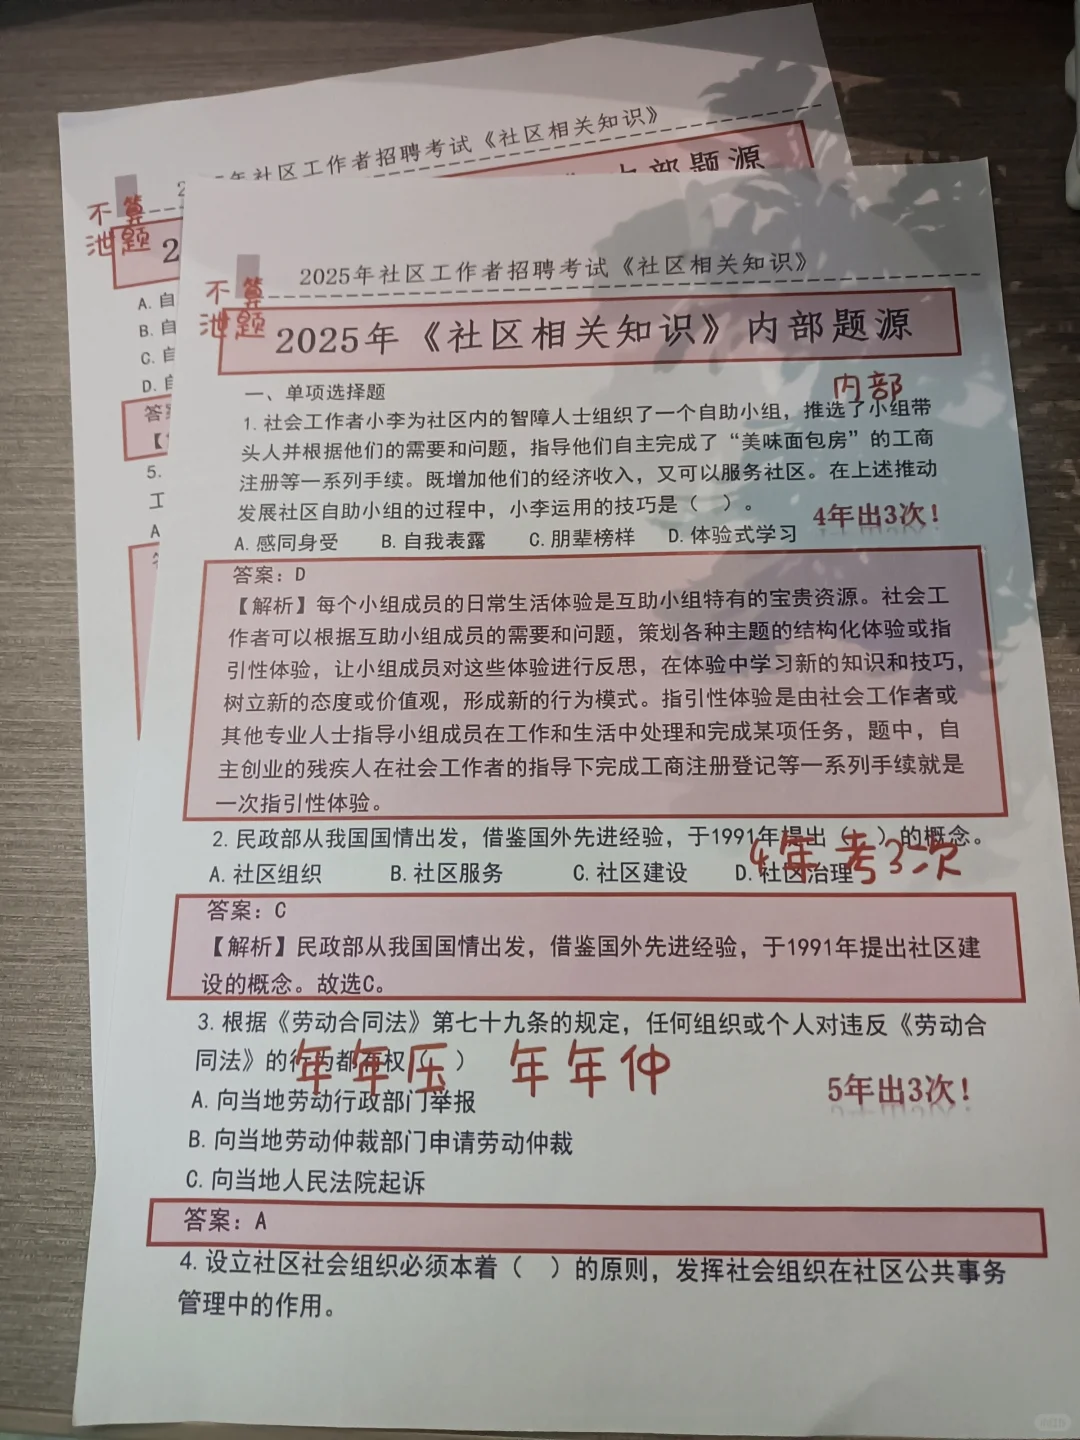 年社区工作者招聘考试《社区相关知识》
内部题源
不算
池题
2
A. 自
B. 自
C. 自
D. 自
答案
【
5.
工
A
2025年社区工作者招聘考试《社区相关知识》
不算
池题
2025年《社区相关知识》内部题源
一、单项选择题
内部
1. 社会工作者小李为社区内的智障人士组织了一个自助小组，推选了小组带
头人并根据他们的需要和问题，指导他们自主完成了“美味面包房”的工商
注册等一系列手续。既增加他们的经济收入，又可以服务社区。在上述推动
发展社区自助小组的过程中，小李运用的技巧是（ ）。
4年出3次！
A. 感同身受 B. 自我表露 C. 朋辈榜样 D. 体验式学习
答案：D
【解析】每个小组成员的日常生活体验是互助小组特有的宝贵资源。社会工
作者可以根据互助小组成员的需要和问题，策划各种主题的结构化体验或指
引性体验，让小组成员对这些体验进行反思，在体验中学习新的知识和技巧，
树立新的态度或价值观，形成新的行为模式。指引性体验是由社会工作者或
其他专业人士指导小组成员在工作和生活中处理和完成某项任务，题中，自
主创业的残疾人在社会工作者的指导下完成工商注册登记等一系列手续就是
一次指引性体验。
2. 民政部从我国国情出发，借鉴国外先进经验，于1991年提出（ ）的概念。
4年考3次
A. 社区组织 B. 社区服务 C. 社区建设 D. 社区治理
答案：C
【解析】民政部从我国国情出发，借鉴国外先进经验，于1991年提出社区建
设的概念。故选C。
3. 根据《劳动合同法》第七十九条的规定，任何组织或个人对违反《劳动合
同法》的行为都有权（ ）
年年压 年年仲
A. 向当地劳动行政部门举报
5年出3次！
B. 向当地劳动仲裁部门申请劳动仲裁
C. 向当地人民法院起诉
答案：A
4. 设立社区社会组织必须本着（ ）的原则，发挥社会组织在社区公共事务
管理中的作用。